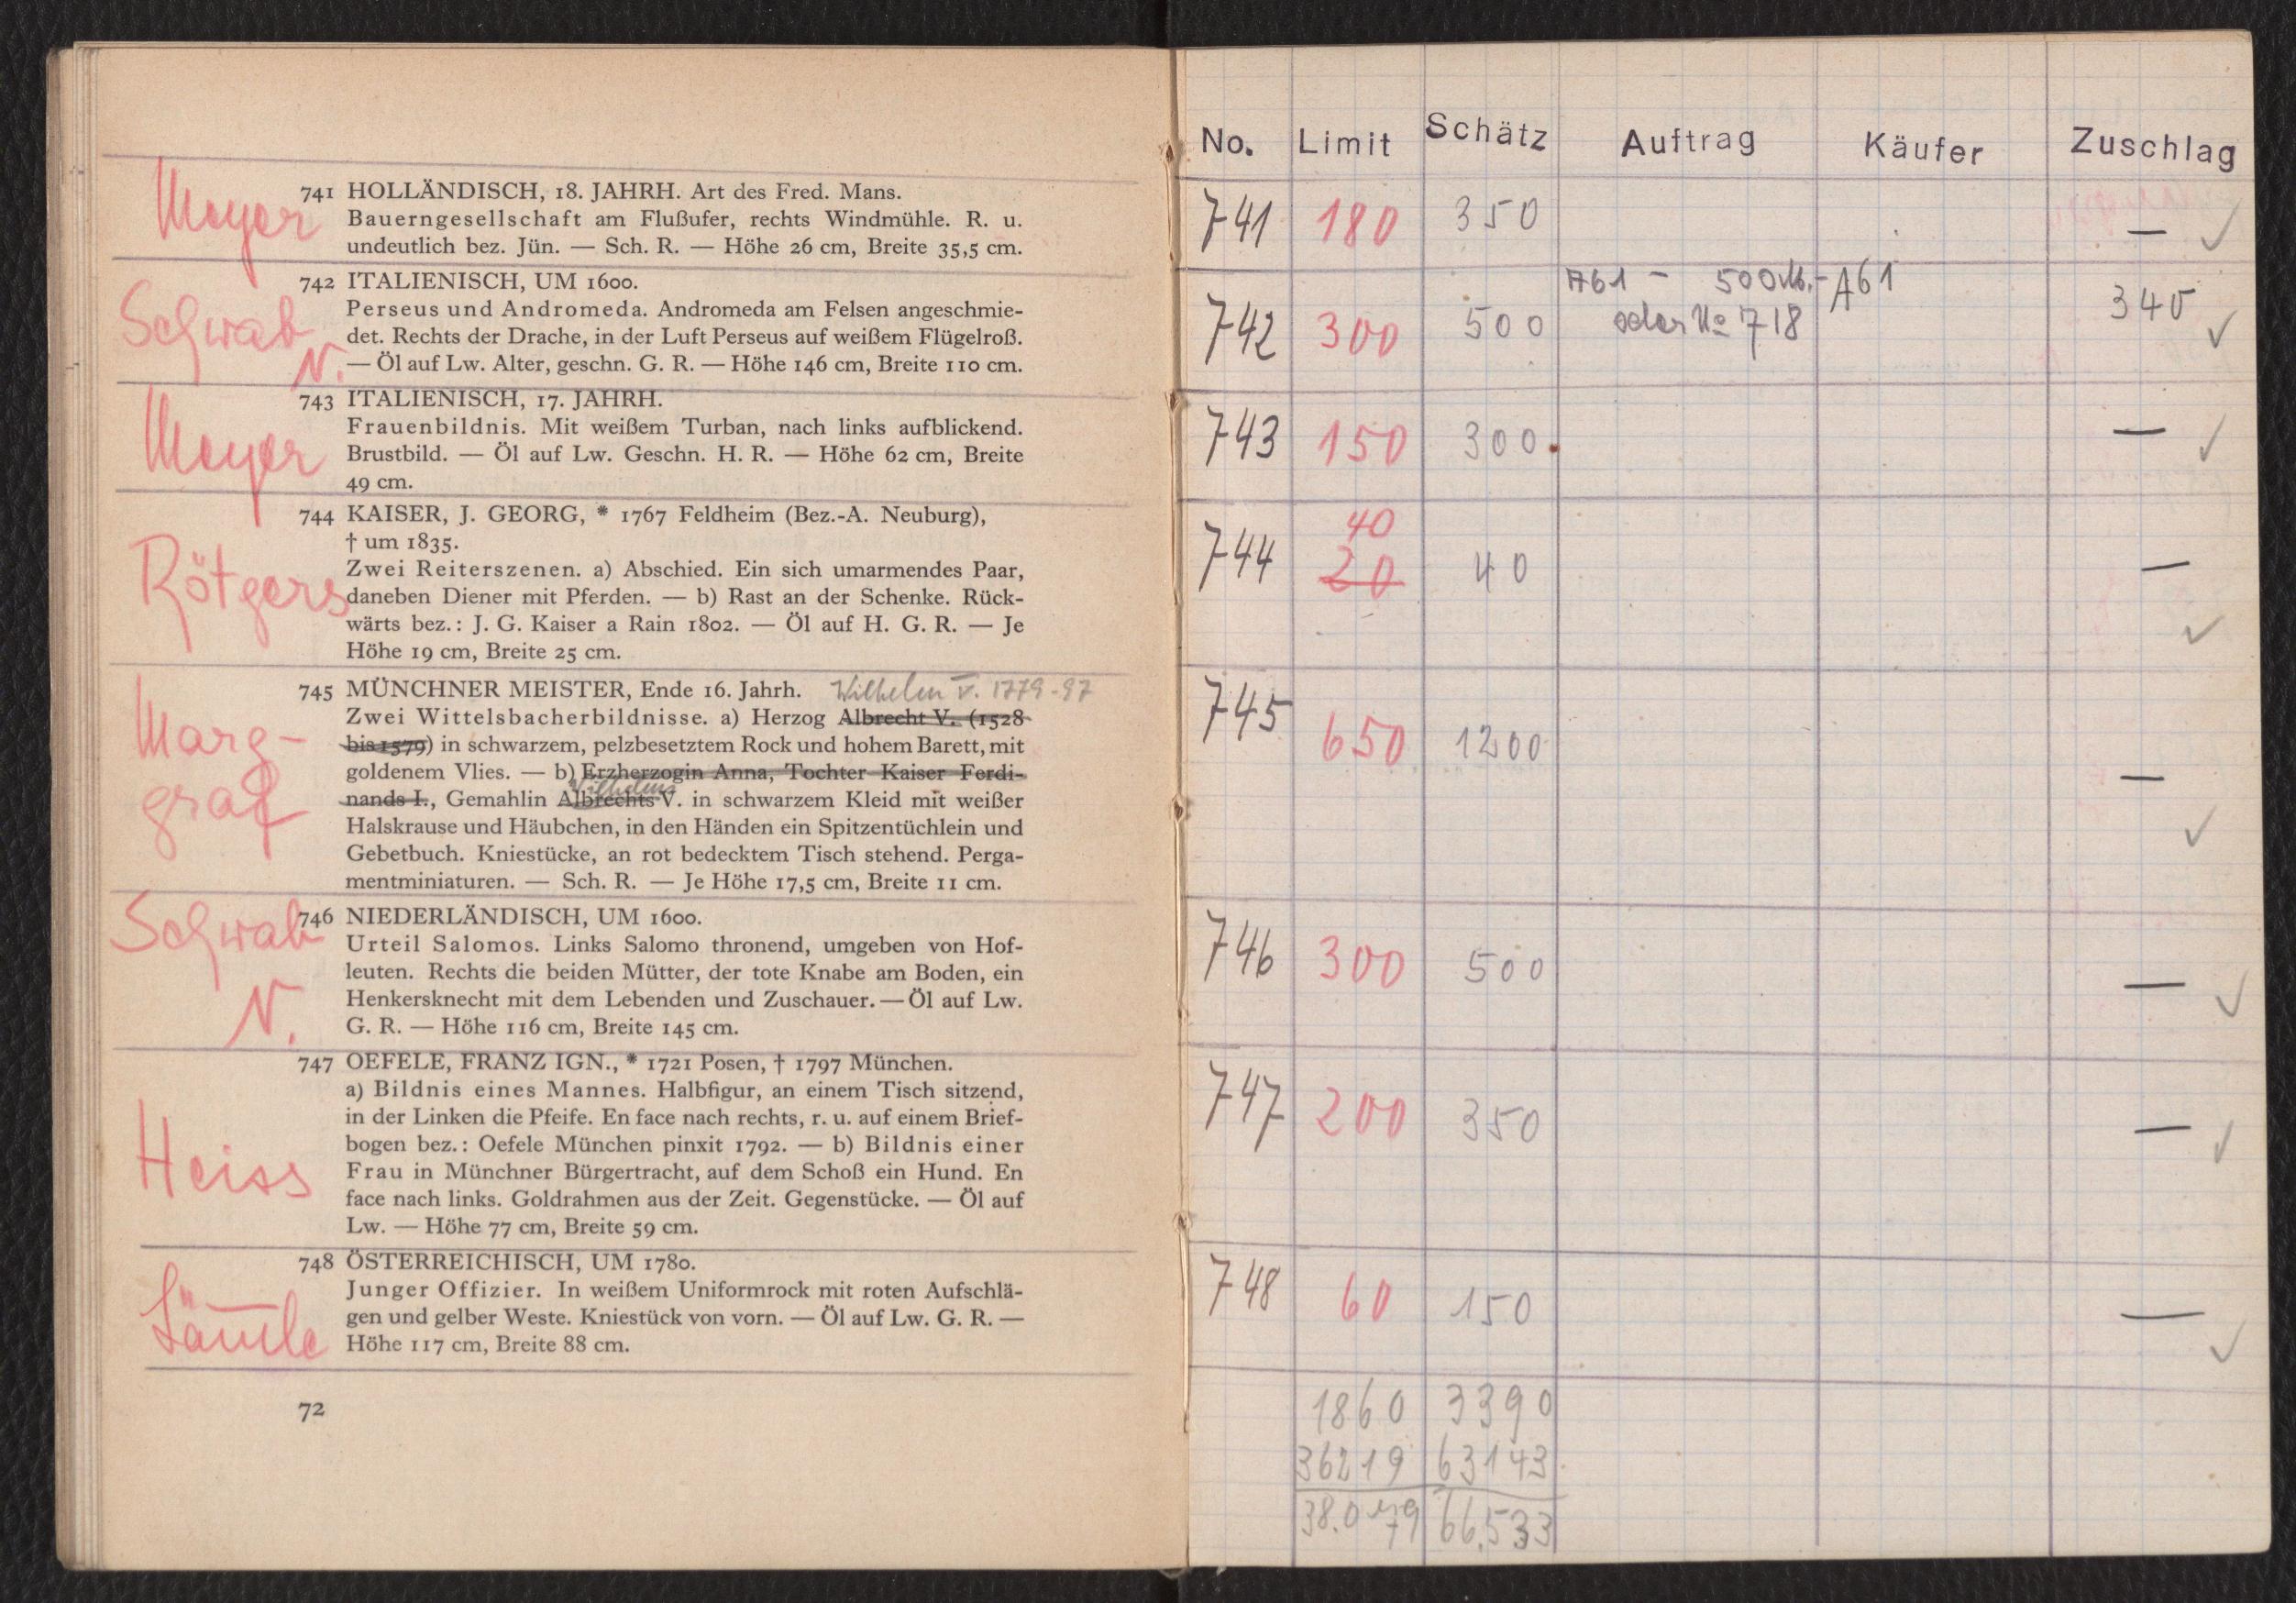 Meyer
741 HOLLÄNDISCH, 18. JAHRH. Art des Fred. Mans.
Bauerngesellschaft am Flußufer, rechts Windmühle. R. u.
undeutlich bez. Jün. — Sch. R. — Höhe 26 cm, Breite 35,5 cm.
Schwab
N.
742 ITALIENISCH, UM 1600.
Perseus und Andromeda. Andromeda am Felsen angeschmie-
det. Rechts der Drache, in der Luft Perseus auf weißem Flügelroß.
— Öl auf Lw. Alter, geschn. G. R. — Höhe 146 cm, Breite 110 cm.
Meyer
743 ITALIENISCH, 17. JAHRH.
Frauenbildnis. Mit weißem Turban, nach links aufblickend.
Brustbild. — Öl auf Lw. Geschn. H. R. — Höhe 62 cm, Breite
49 cm.
Rötgers
744 KAISER, J. GEORG, * 1767 Feldheim (Bez.-A. Neuburg),
† um 1835.
Zwei Reiterszenen. a) Abschied. Ein sich umarmendes Paar,
daneben Diener mit Pferden. — b) Rast an der Schenke. Rück-
wärts bez.: J. G. Kaiser a Rain 1802. — Öl auf H. G. R. — Je
Höhe 19 cm, Breite 25 cm.
Marg-
graf
745 MÜNCHNER MEISTER, Ende 16. Jahrh. Wilhelm V. 1779-97
Zwei Wittelsbacherbildnisse. a) Herzog Albrecht V. (1528
bis 1579) in schwarzem, pelzbesetztem Rock und hohem Barett, mit
goldenem Vlies. — b) Erzherzogin Anna, Tochter Kaiser Ferdi-
Wilhelms
nands I., Gemahlin Albrechts V. in schwarzem Kleid mit weißer
Halskrause und Häubchen, in den Händen ein Spitzentüchlein und
Gebetbuch. Kniestücke, an rot bedecktem Tisch stehend. Perga-
mentminiaturen. — Sch. R. — Je Höhe 17,5 cm, Breite 11 cm.
Schwab
N.
746 NIEDERLÄNDISCH, UM 1600.
Urteil Salomos. Links Salomo thronend, umgeben von Hof-
leuten. Rechts die beiden Mütter, der tote Knabe am Boden, ein
Henkersknecht mit dem Lebenden und Zuschauer. — Öl auf Lw.
G. R. — Höhe 116 cm, Breite 145 cm.
Heiss
747 OEFELE, FRANZ IGN., * 1721 Posen, † 1797 München.
a) Bildnis eines Mannes. Halbfigur, an einem Tisch sitzend,
in der Linken die Pfeife. En face nach rechts, r. u. auf einem Brief-
bogen bez.: Oefele München pinxit 1792. — b) Bildnis einer
Frau in Münchner Bürgertracht, auf dem Schoß ein Hund. En
face nach links. Goldrahmen aus der Zeit. Gegenstücke. — Öl auf
Lw. — Höhe 77 cm, Breite 59 cm.
748 ÖSTERREICHISCH, UM 1780.
Junger Offizier. In weißem Uniformrock mit roten Aufschlä-
gen und gelber Weste. Kniestück von vorn. — Öl auf Lw. G. R. —
Höhe 117 cm, Breite 88 cm.
72
No. Limit Schätz Auftrag Käufer Zuschlag
741 180 350 — ✓
742 300 500 A61 - 500 M.- A61 340 ✓
oder No 718
743 150 300 — ✓
40
744 20 40 — ✓
745 650 1200 — ✓
746 300 500 — ✓
747 200 350 — ✓
748 60 150 — ✓
1860 3390
36219 63143
38.079 66.533